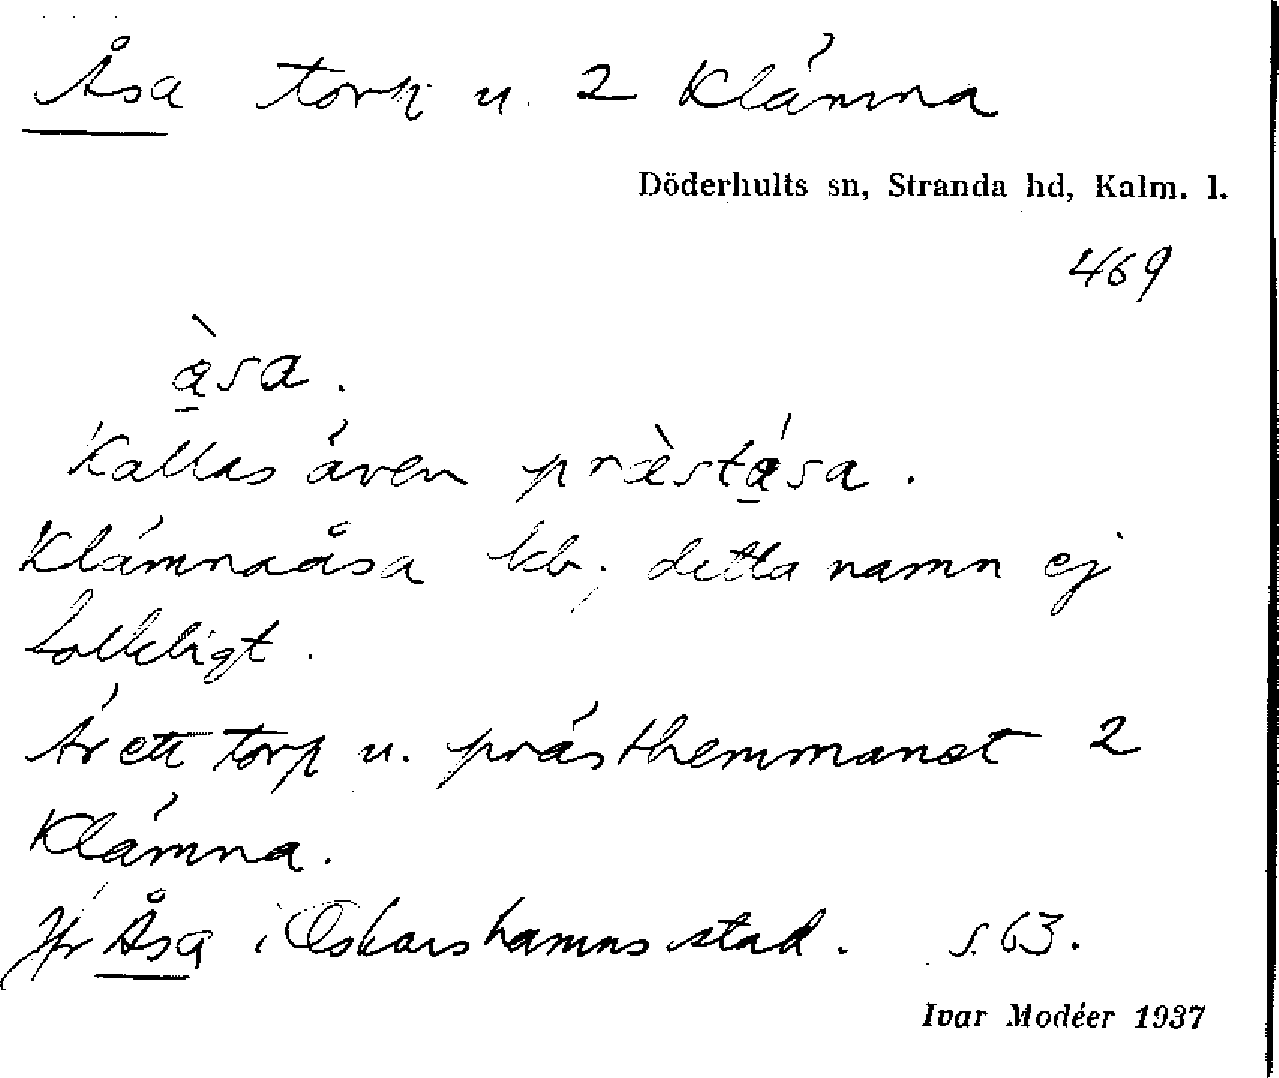 Åsa torp u. 2 Klämna
Döderhults sn, Stranda hd, Kalm. l.
469
à̱sa.
Kallas även præ̀stá̱sa.
Klämnaåsa kb; detta namn ej
folkligt.
Är ett torp u. prästhemmanet 2
Klämna.
Jfr Åsa i Oskarshamns stad. s. 63.
Ivar Modéer 1937